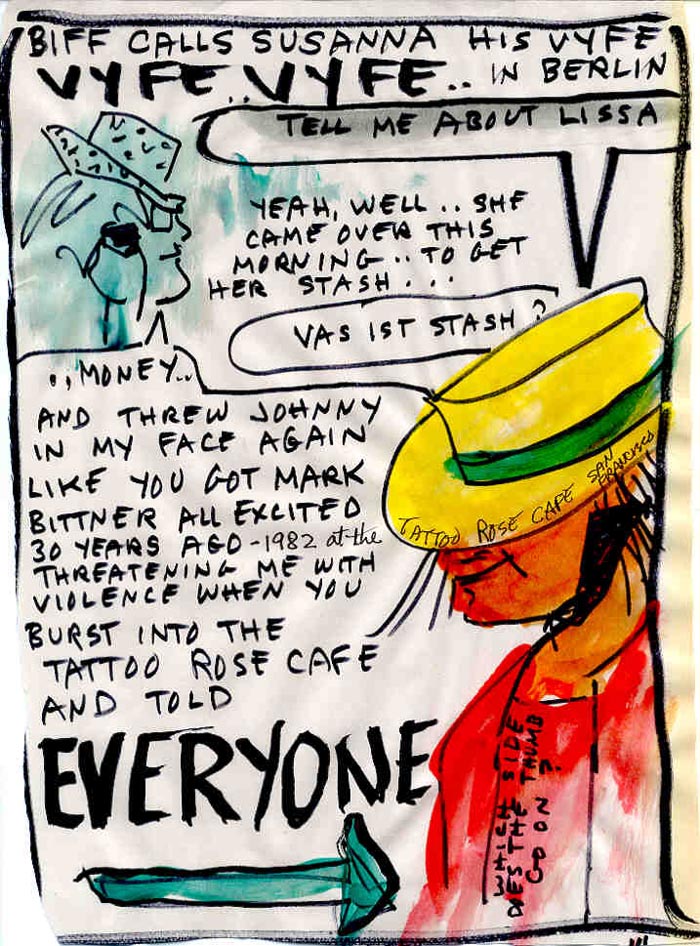 BIFF CALLS SUSANNA HIS VYFE
VYFE.. VYFE.. IN BERLIN
TELL ME ABOUT LISSA
YEAH, WELL.. SHE
CAME OVER THIS
MORNING.. TO GET
HER STASH...
VAS IST STASH?
.. MONEY..
AND THREW JOHNNY
IN MY FACE AGAIN
LIKE YOU GOT MARK
BITTNER ALL EXCITED
30 YEARS AGO -1982 at the
THREATENING ME WITH
VIOLENCE WHEN YOU
BURST INTO THE
TATTOO ROSE CAFE
AND TOLD
EVERYONE
TATTOO ROSE CAFE SAN
FRANCISCO
WHICH SIDE
DOES THE THUMB
GO ON?